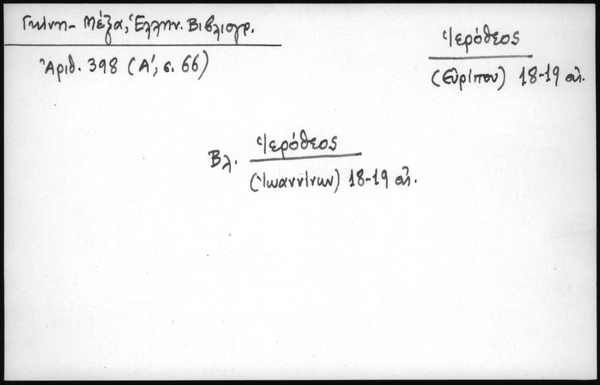 Γκίνη - Μέξα, Ἑλλην. Βιβλιογρ.
Ἀριθ. 398 (Α', σ. 66)
Ἱερόθεος
(Εὐρίπου) 18-19 αἰ.
Βλ. Ἱερόθεος
(Ἰωαννίνων) 18-19 αἰ.